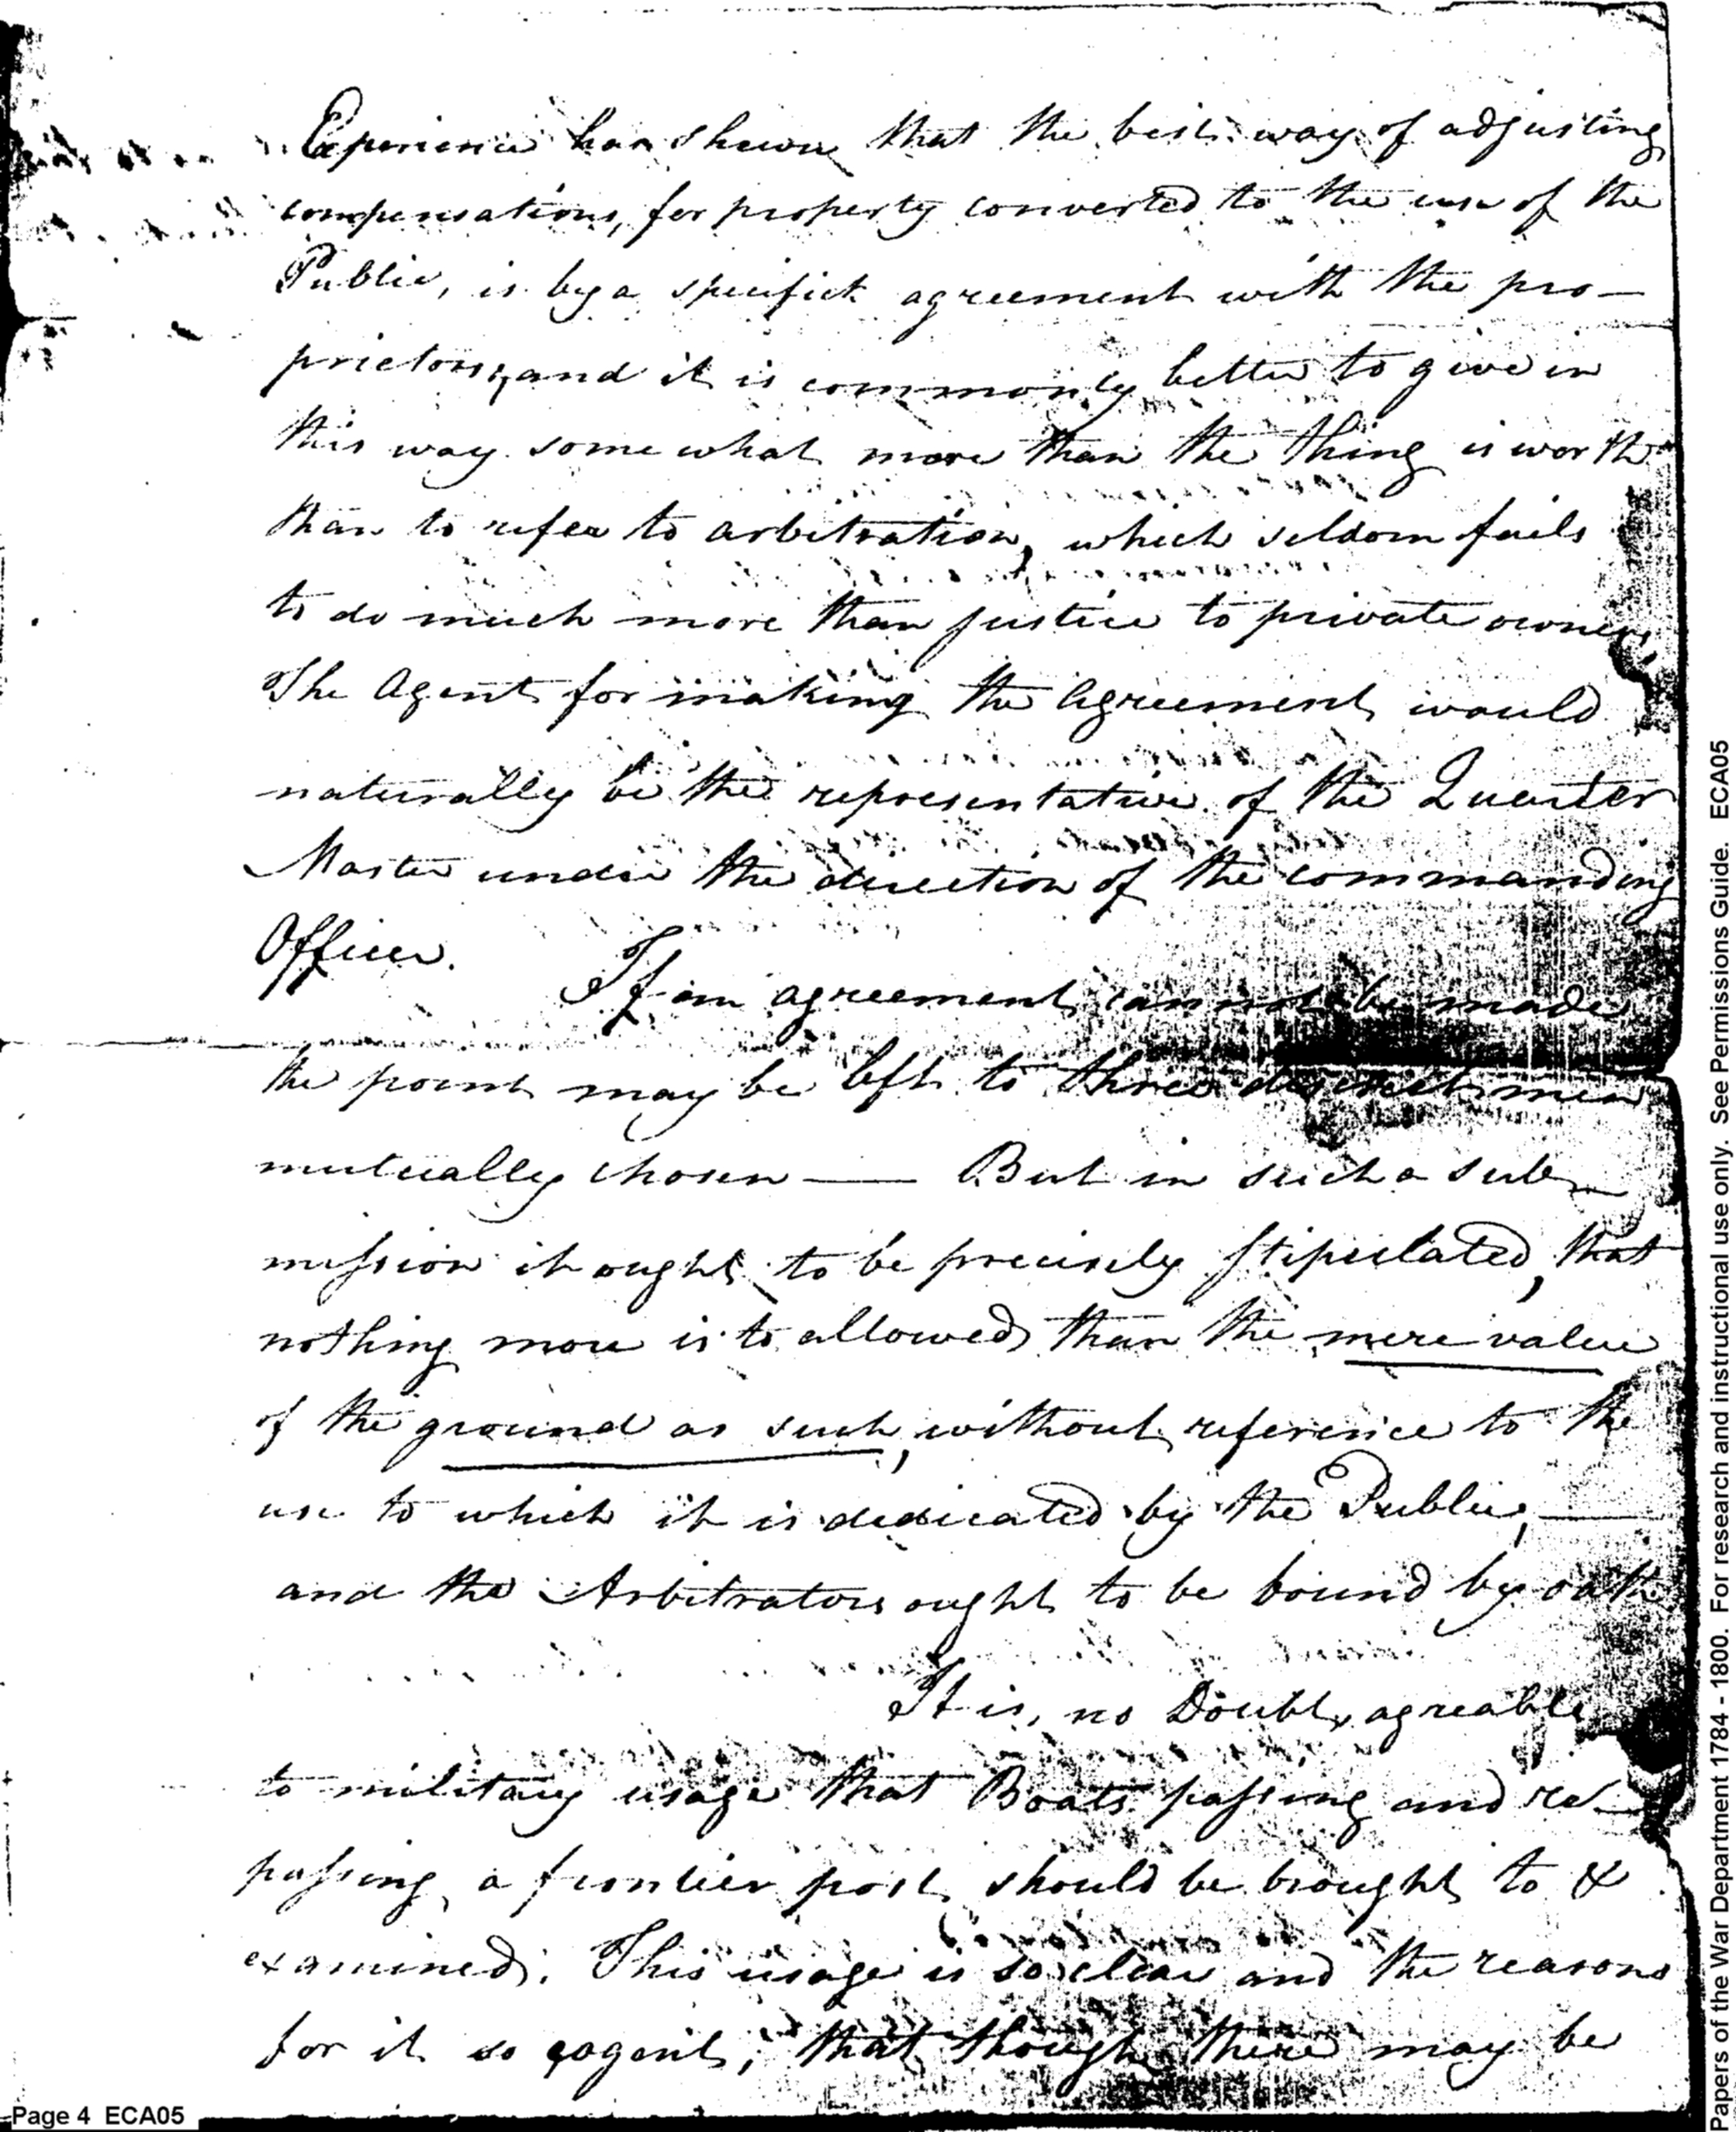 Experience has shewn that the best way of adjusting
compensations, for property converted to the use of the
Public, is by a specifick agreement with the pro-
prietors, and it is commonly better to give in
this way some what more than the thing is worth
than to refer to arbitration, which seldom fails
to do much more than justice to private owners
The Agent for making the Agreement would
naturally be the representative of the Quarter
Master under the direction of the commanding
Officer.
If an agreement cannot be made
the point may be left to three discreet men
mutually chosen — But in such a sub-
mission it ought to be precisely stipulated, that
nothing more is to allowed than the mere value
of the ground as such, without reference to the
use to which it is dedicated by the Public, —
and the Arbitrators ought to be bound by oath
It is, no Doubt, agreable
to military usage that Boats passing and re-
passing a frontier post should be brought to &
examined. This usage is so clear and the reasons
for it so cogent, that though there may be
Page 4 ECA05
Papers of the War Department 1784 - 1800. For research and instructional use only. See Permissions Guide. ECA05